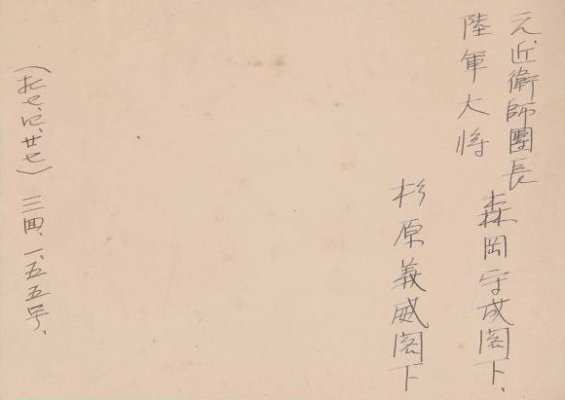 元近衛師團長
陸軍大将
森岡守成閣下、
杉原義威閣下
七、廿七) 三四、一、五五号、